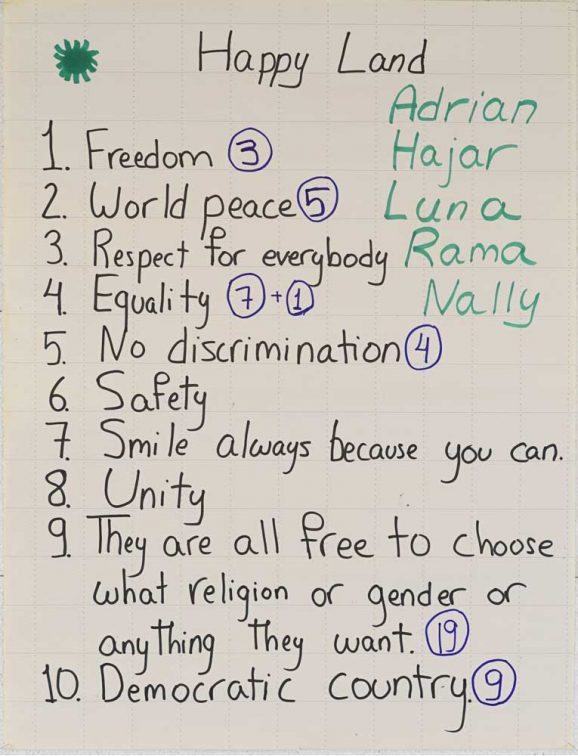 Happy Land
Adrian
1. Freedom 3
Hajar
2. World peace 5
Luna
3. Respect for everybody
Rama
4. Equality 7 + 1
Nally
5. No discrimination 4
6. Safety
7. Smile always because you can.
8. Unity
9. They are all free to choose
what religion or gender or
anything they want. 19
10. Democratic country. 9